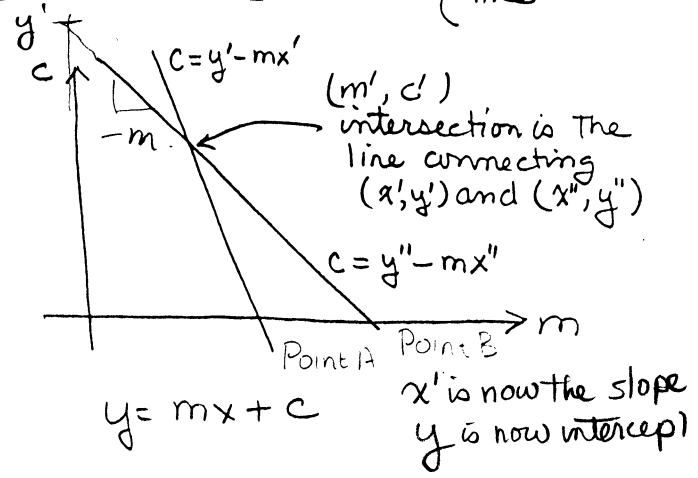 y'
c
c = y' - mx'
(m', c')
intersection is The
line connecting
(x', y') and (x", y")
-m
c = y" - mx"
m
Point A
Point B
y = mx + c
x' is now the slope
y is now intercept